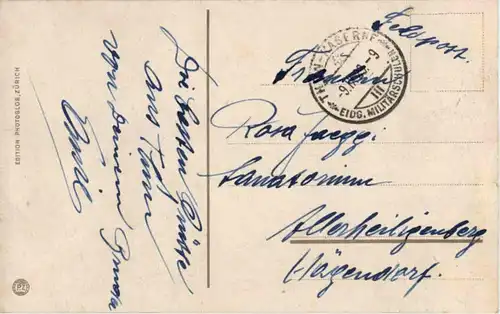 EDITION PHOTOGLOB, ZÜRICH
Die besten Grüsse
aus Thun
von Deinem Bruder
Emil
Feldpost.
THUN-KASERNE
EIDG. MILITÄRSCHULEN
III
Fräulein
Rosa Jaeggi
Sanatorium
Allerheiligenberg
Hägendorf.